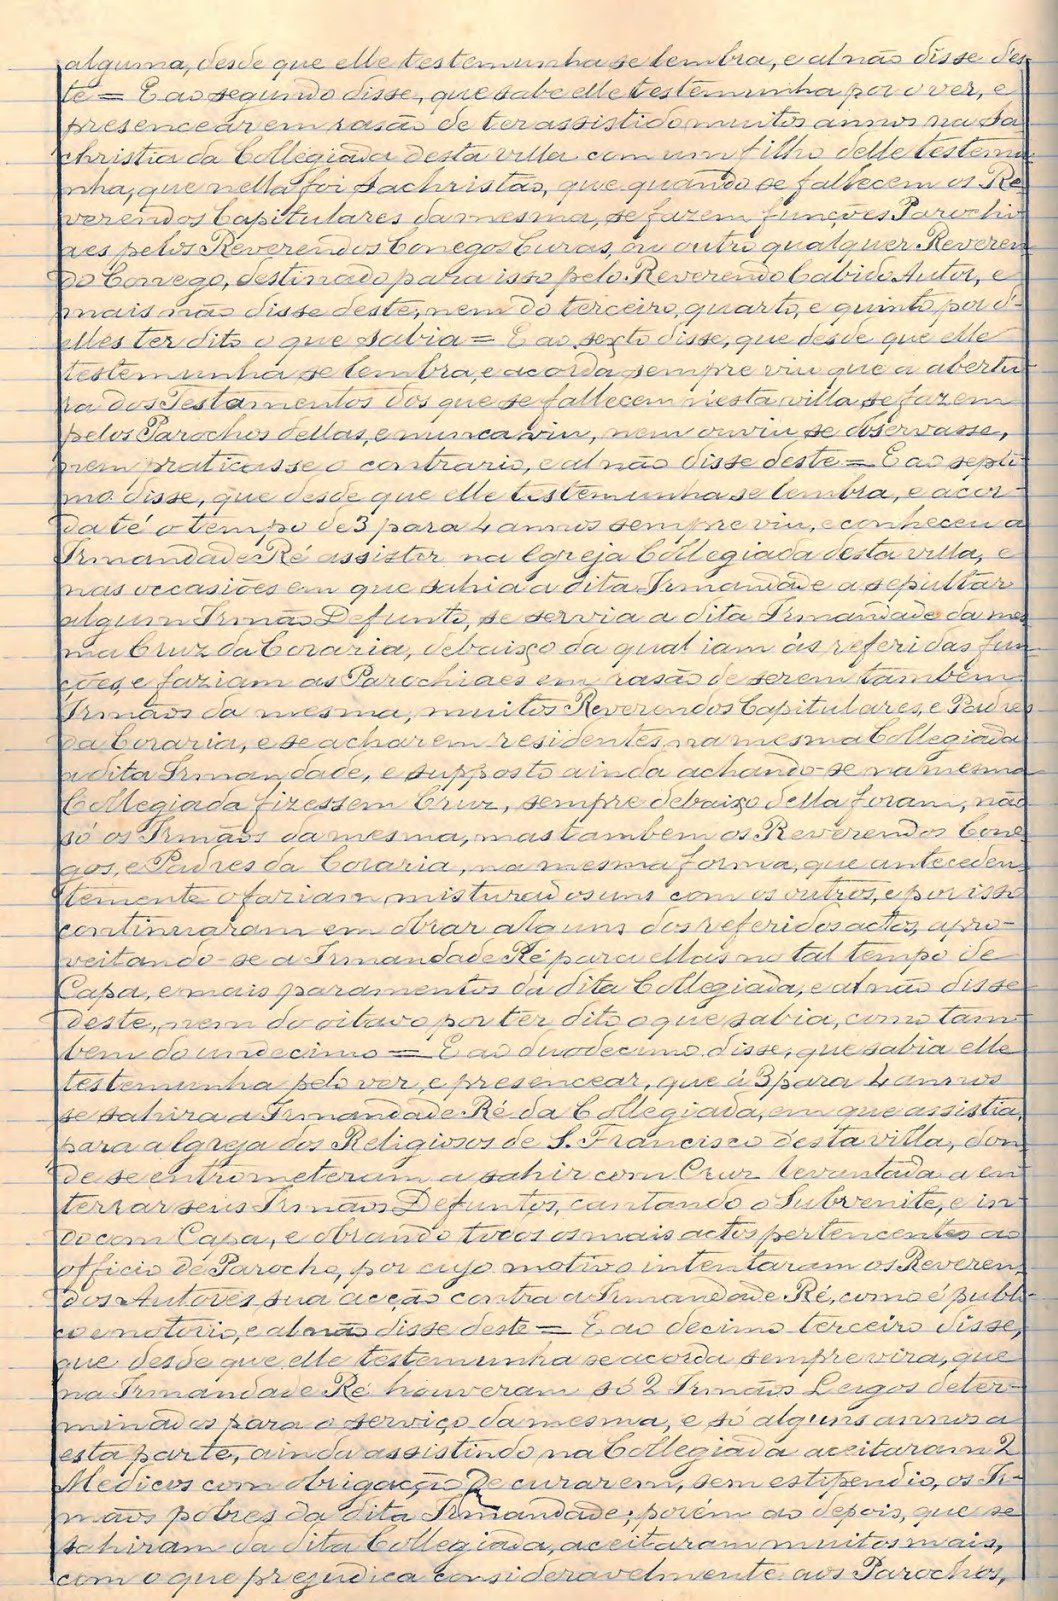 alguma, desde que elle testemunha se lembra, e al não disse des
te = E ao segundo disse, que sabe elle testemunha por o ver, e
presencear em rasão de ter assistido muitos annos na Sa
christia da Collegiada desta villa com um filho delle testemu
nha, que nella foi Sachristão, que quando se fallecem os Re
verendos Capitulares da mesma, se fazem funções Parochi
aes pelos Reverendos Conegos Curas, ou outro qualquer Reveren
do Conego, destinado para isso pelo Reverendo Cabido Autor, e
mais não disse deste, nem do terceiro, quarto, e quinto por d'
elles ter dito o que sabia = E ao sexto disse, que desde que elle
testemunha se lembra, e acorda sempre viu que a abertu
ra dos Testamentos dos que se fallecem n'esta villa se fazem
pelos Parochos dellas, e nunca viu, nem ouviu se observasse,
nem praticasse o contrario, e al não disse deste = E ao septi
mo disse, que desde que elle testemunha se lembra, e acor
da té o tempo de 3 para 4 annos sempre viu, e conheceu a
Irmandade Ré assistir na Egreja Collegiada desta villa, e
nas occasiões em que sahia a dita Irmandade a sepultar
algum Irmão Defunto, se servia a dita Irmandade da mes
ma Cruz da Coraria, debaixo da qual iam ás referidas fun
ções, e faziam as Parochiaes em rasão de serem tambem
Irmãos da mesma, muitos Reverendos Capitulares, e Padres
da Coraria, e se acharem residentes, na mesma Collegiada
a dita Irmandade, e supposto ainda achando-se na mesma
Collegiada fizessem Cruz, sempre debaixo della foram, não
só os Irmãos da mesma, mas tambem os Reverendos Cone
gos, e Padres da Coraria, na mesma forma, que anteceden
temente o fariam, misturados uns com os outros, e por isso
continuaram em obrar alguns dos referidos actos, apro-
veitando-se a Irmandade Ré para ellas no tal tempo de
Capa, e mais paramentos da dita Collegiada, e al não disse
deste, nem do oitavo por ter dito o que sabia, como tam-
bem do undecimo = E ao duodecimo disse, que sabia elle
testemunha pelo ver, e presencear, que á 3 para 4 annos
se sahira a Irmandade Ré da Collegiada, em que assistia,
para a Igreja dos Religiosos de S. Francisco d'esta villa, don
de se entrometeram a sahir com Cruz levantada a en
terrar seus Irmãos Defuntos, cantando o Subvenite, e in
do com Capa, e obrando todos os mais actos pertencentes ao
officio de Parocho, por cujo motivo intentaram os Reveren
dos Autores sua acção contra a Irmandade Ré, como é publi
co e notorio, e al não disse deste = E ao decimo terceiro disse,
que desde que elle testemunha se acorda sempre vira, que
na Irmandade Ré houveram só 2 Irmãos Leigos deter-
minados para o serviço da mesma, e só alguns annos a
esta parte, ainda assistindo na Collegiada aceitaram 2
Medicos com obrigação de curarem, sem estipendio, os Ir-
mãos pobres da dita Irmandade; porém ao depois, que se
sahiram da dita Collegiada, aceitaram muitos mais,
com o que prejudica consideravelmente aos Parochos,